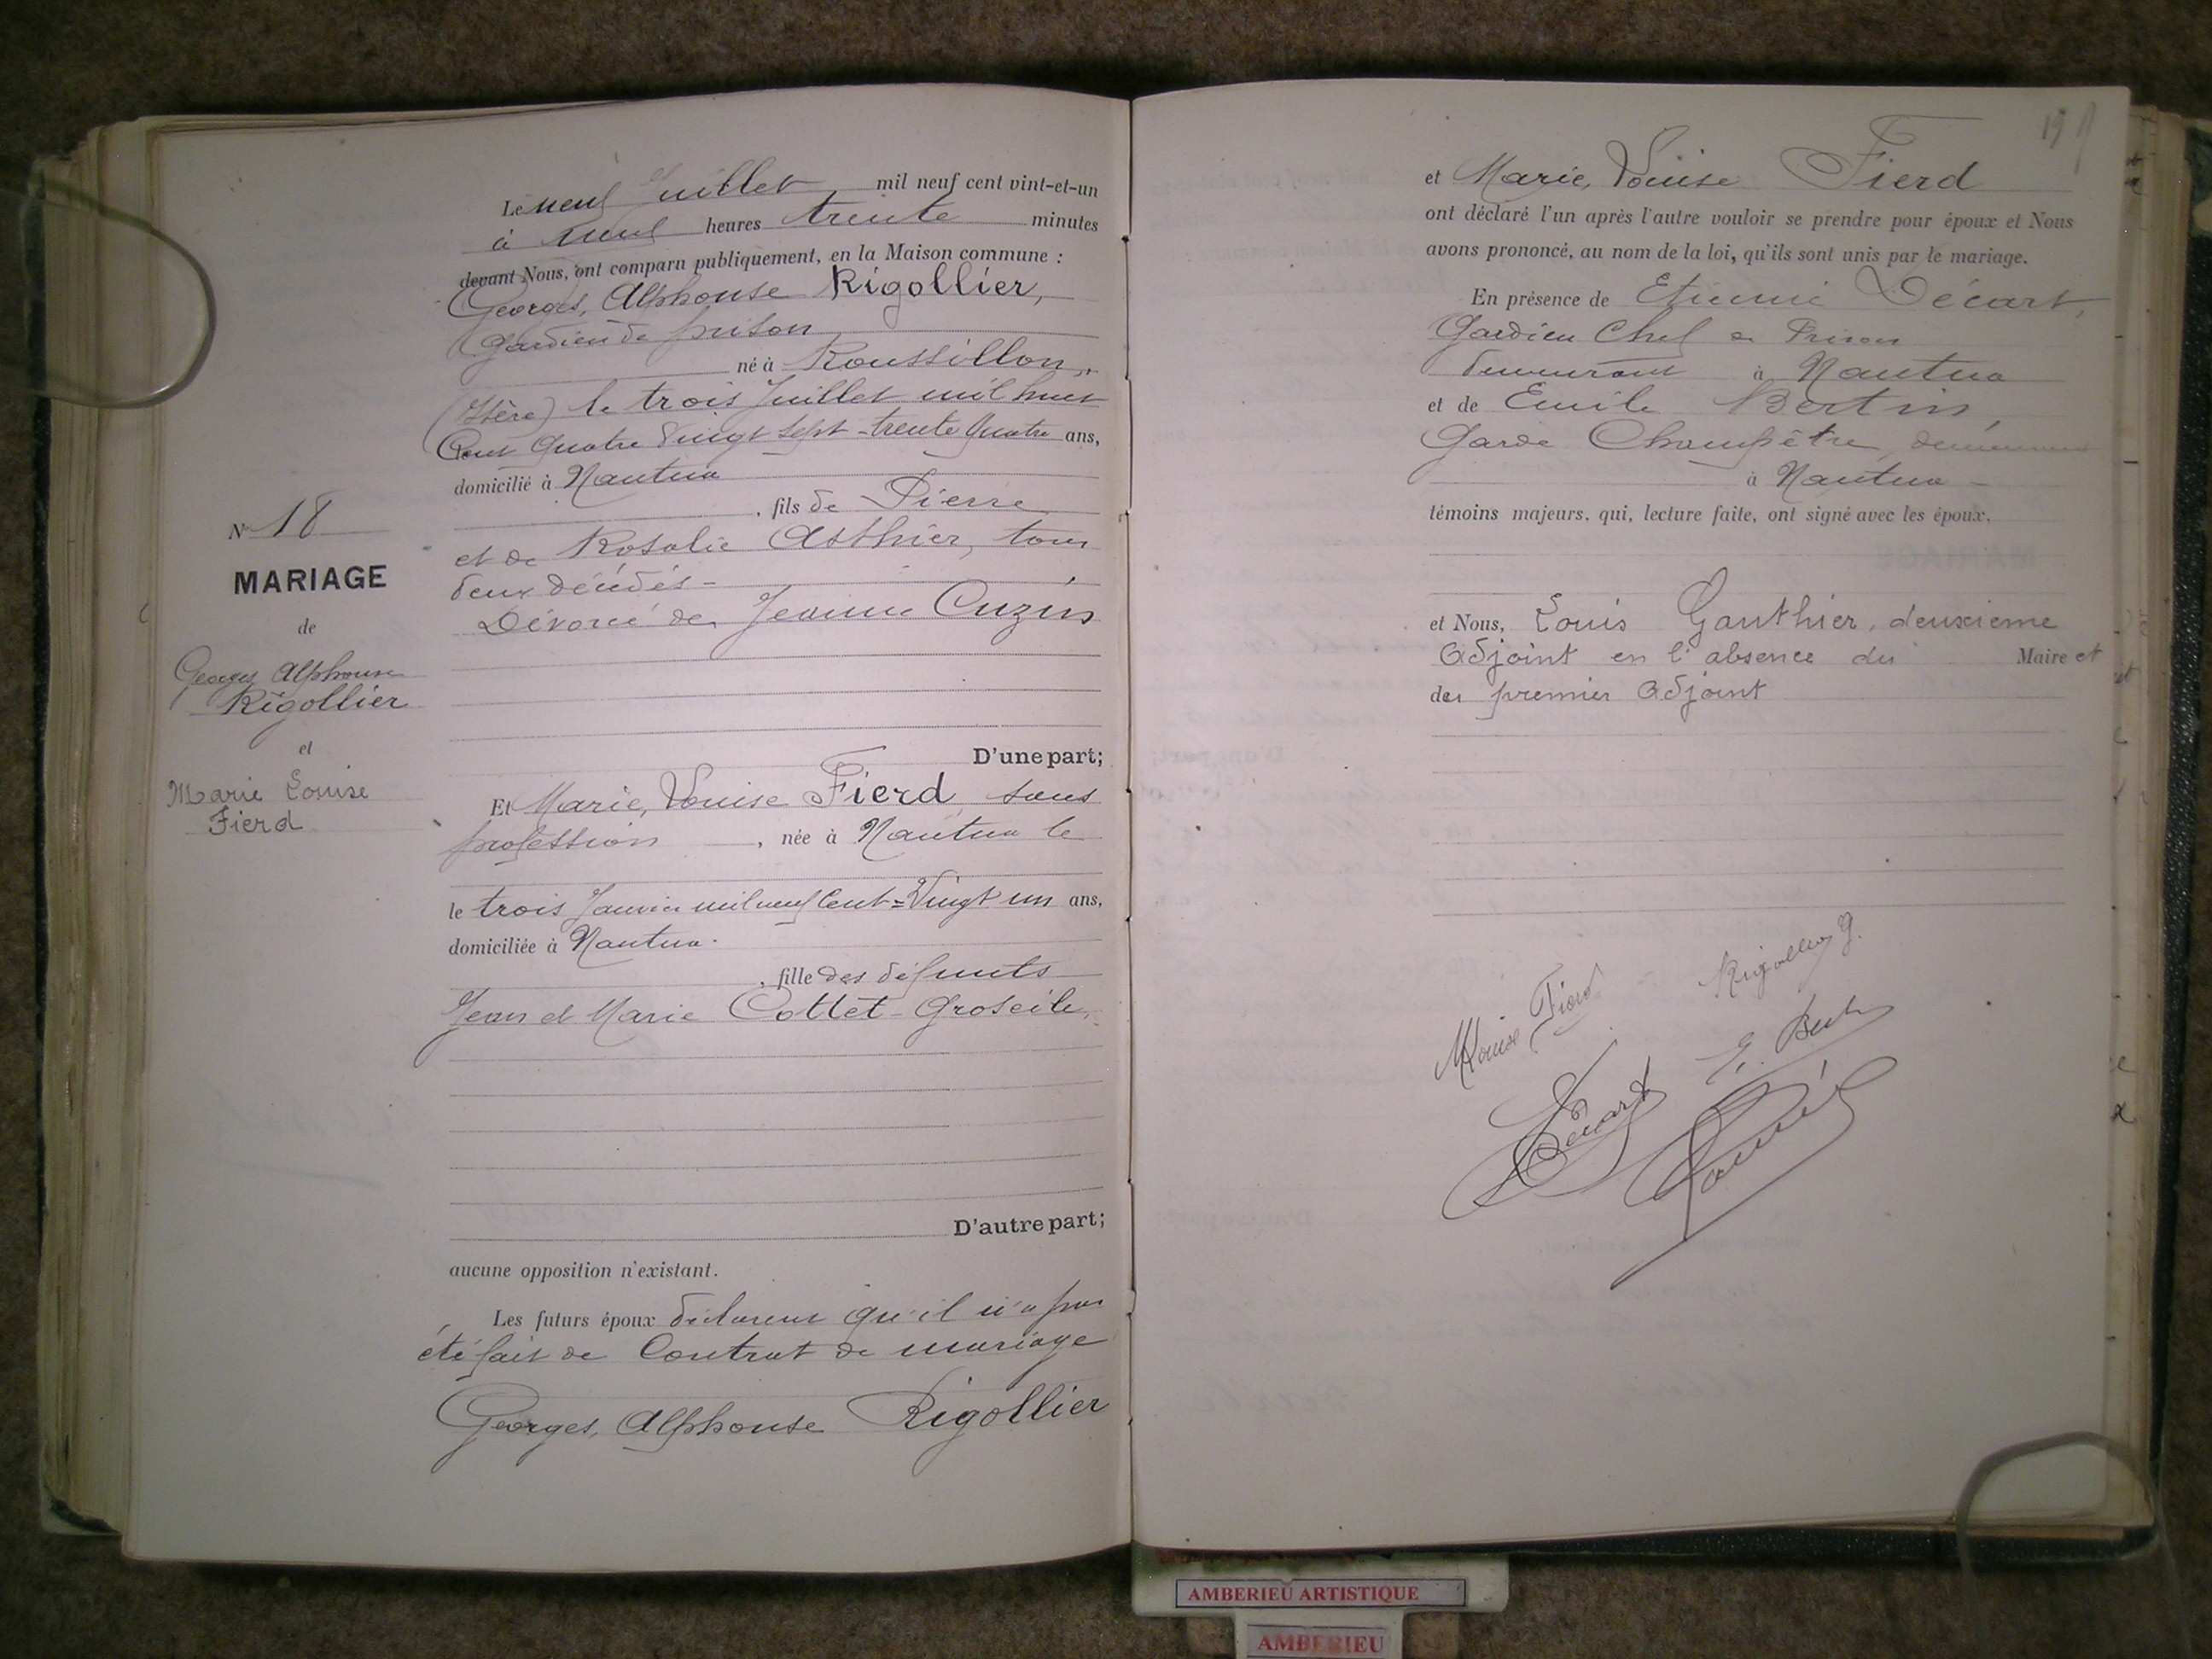 N° 18
MARIAGE
de
Georges Alphonse
Rigollier
et
Marie Louise
Fierd
Le neuf Juillet mil neuf cent vint-et-un
à neuf heures trente minutes
devant Nous, ont comparu publiquement, en la Maison commune :
Georges, Alphonse Rigollier,
Gardien de prison
né à Roussillon,
(Isère) le trois Juillet mil huit
Cent Quatre Vingt Sept - trente Quatre ans,
domicilié à Nantua
, fils de Pierre
et de Rosalie Asthier, tous
deux décédés -
Divorcé de Jeanne Cuzin
D'une part;
Et Marie, Louise Fierd, sans
profession , née à Nantua le
le trois Janvier mil neuf Cent = Vingt un ans,
domiciliée à Nantua.
, fille des défunts
Jean et Marie Cottet-Groseile,
D'autre part;
aucune opposition n'existant.
Les futurs époux déclarent qu'il n'a pas
été fait de Contrat de mariage
Georges, Alphonse Rigollier
19
et Marie, Louise Fierd
ont déclaré l'un après l'autre vouloir se prendre pour époux et Nous
avons prononcé, au nom de la loi, qu'ils sont unis par le mariage.
En présence de Etienne Décart,
Gardien Chef de Prison
demeurant à Nantua
et de Emile Bertin,
Garde Champêtre, demeurant
à Nantua -
témoins majeurs, qui, lecture faite, ont signé avec les époux.
et Nous, Louis Gauthier, deuxieme
Adjoint en l'absence du Maire et
du premier Adjoint
Rigollier G.
M Louise Fierd
E. Bertin
Décart
AMBERIEU ARTISTIQUE
AMBERIEU